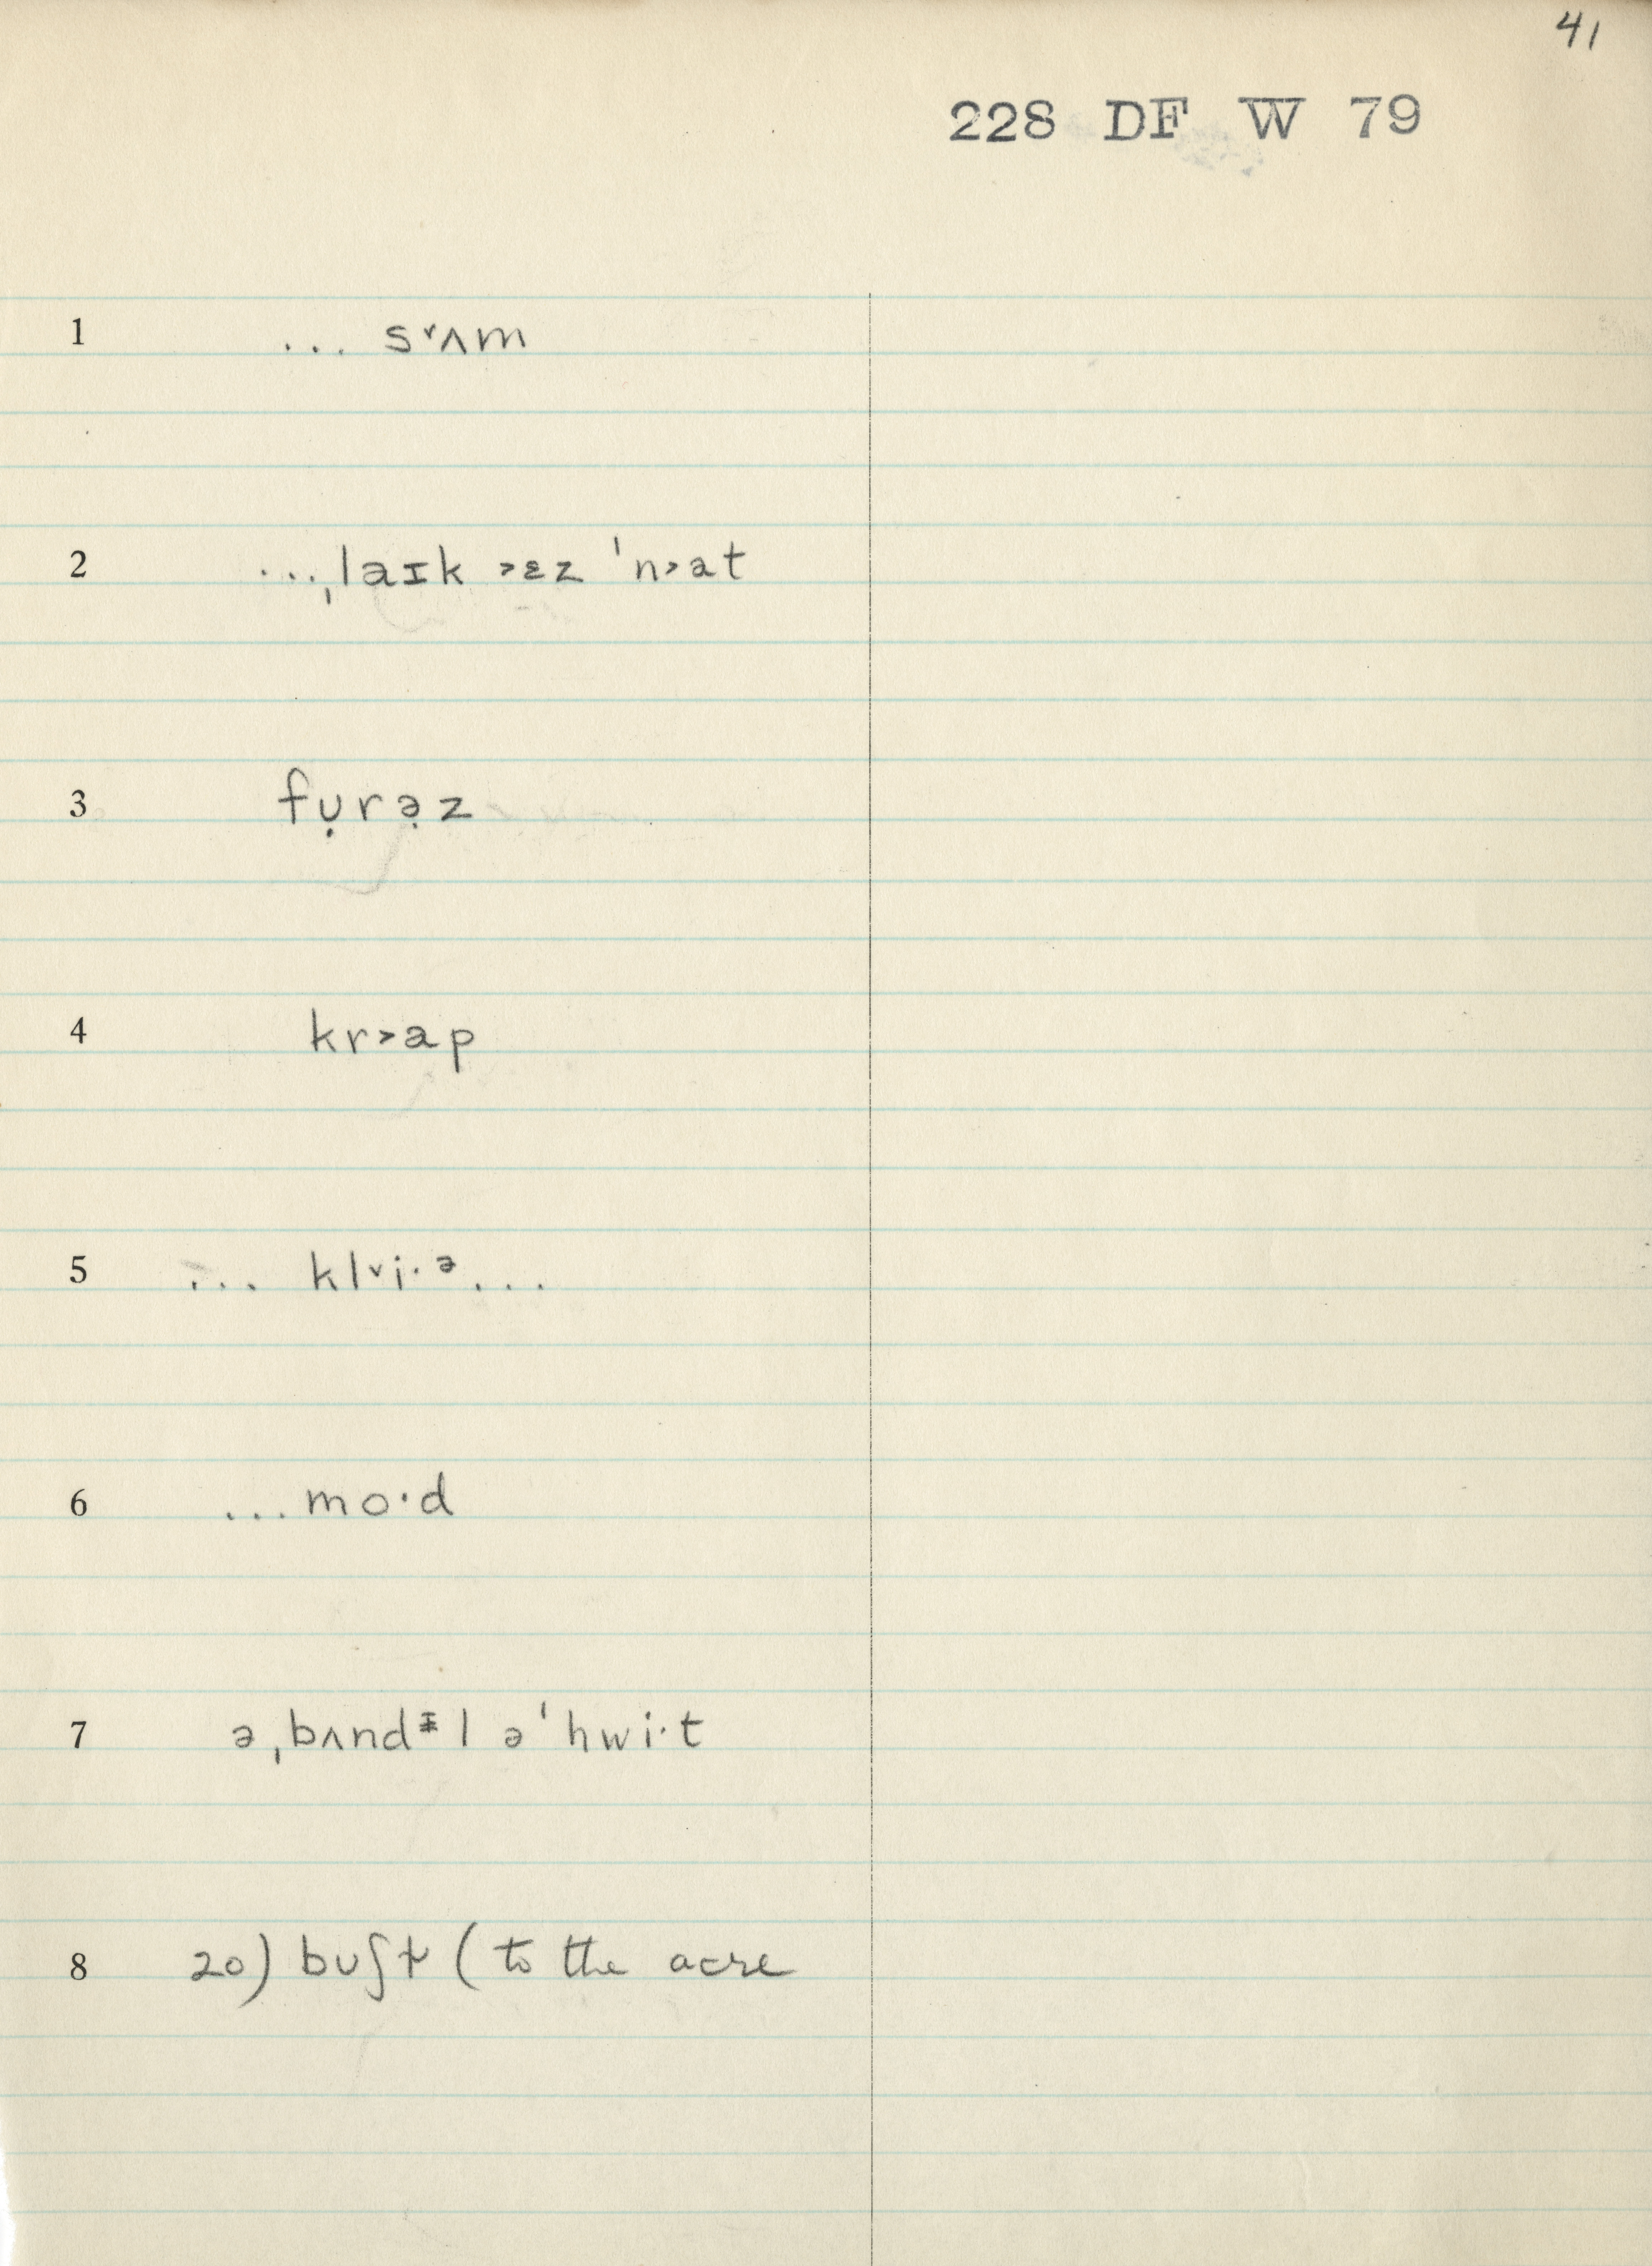 41
228 DF W 79
1 ... s˅ʌm
2 ...ˌlaɪk ˃ɛz ˈn˃at
3 fụrə̣z
4 kr˃ap
5 ... kl˅i·ᵊ...
6 ...mo·d
7 əˌbʌndᵻl əˈhwi·t
8 20) buʃɫ (to the acre